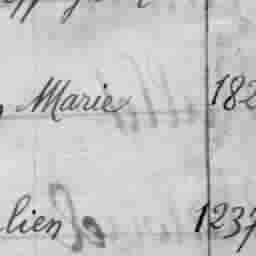 Marie 182
lien 1237